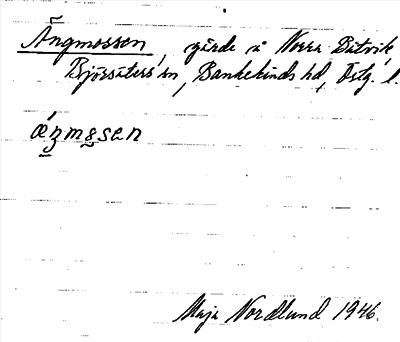 Ängmossen, gärde i Norra Båtvik,
Björsäters sn, Bankekinds hd, Östg. l.
ǽŋmåsen
Maja Nordlund 1946.